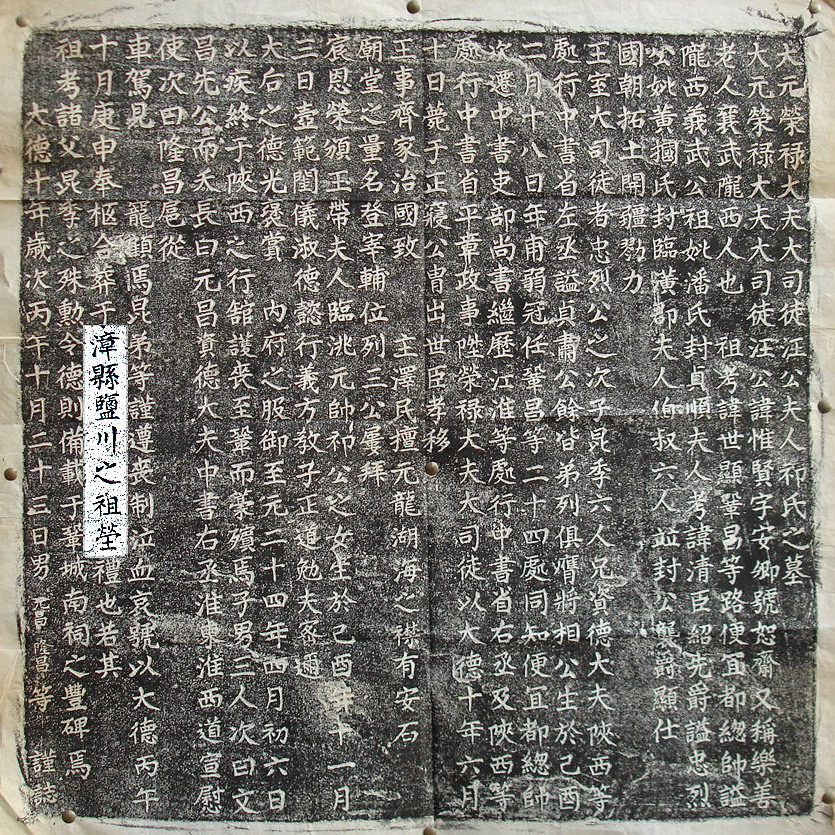 大元榮祿大夫大司徒汪公夫人祁氏之墓
大元榮祿大夫大司徒汪公諱惟賢字安卿號恕齋又稱樂善
老人襄武隴西人也　祖考諱世顯鞏昌等路便宜都總帥謚
隴西義武公祖妣潘氏封貞順夫人考諱清臣紹先爵謚忠烈
公妣黃摑氏封臨潢郡夫人伯叔六人並封公襲爵顯仕
國朝拓土開疆勠力
王室大司徒者忠烈公之次子昆季六人兄資德大夫陝西等
處行中書省左丞謚貞肅公餘皆弟列俱膺將相公生於己酉
二月十八日年甫弱冠任鞏昌等二十四處同知便宜都總帥
次遷中書吏部尚書繼歷江淮等處行中書省右丞及陝西等
處行中書省平章政事陞榮祿大夫大司徒以大德十年六月
十日薨于正寢公胄出世臣孝移
王事齊家治國致　主澤民擅元龍湖海之襟有安石
廟堂之量名登宰輔位列三公屢拜
宸恩榮頒玉帶夫人臨洮元帥祁公之女生於己酉年十一月
三日壼範閨儀淑德懿行義方教子正道勉夫冢邇
大后之德光褒賞　內府之服御至元二十四年四月初六日
以疾終于陝西之行舘護喪至鞏而藁殯焉子男三人次曰文
昌先公而夭長曰元昌資德大夫中書右丞淮東淮西道宣慰
使次曰隆昌扈從
車駕見　寵顧焉昆弟等謹遵喪制泣血哀號以大德丙午
十月庚申奉柩合葬于漳縣鹽川之祖塋禮也若其
祖考諸父昆季之殊勳令德則備載于鞏城南祠之豐碑焉
大德十年歲次丙午十月二十三日男元昌隆昌等　謹誌